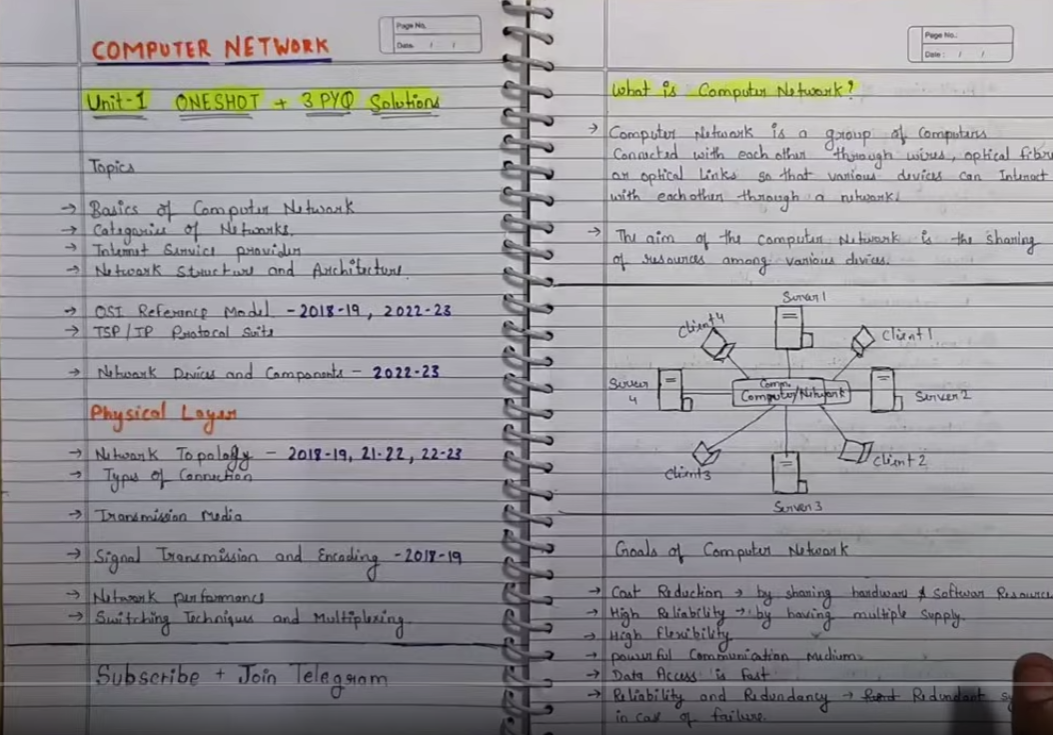 Page No.
Date: / /
COMPUTER NETWORK
Unit-1 ONESHOT + 3 PYQ Solutions
Topics
→ Basics of Computer Network
→ Categories of Networks.
→ Internet Service provider
→ Network Structure and Architecture.
→ OSI Reference Model - 2018-19, 2022-23
→ TSP/IP Protocal Suite
→ Network Devices and Components - 2022-23
Physical Layer
→ Network Topology - 2018-19, 21-22, 22-23
→ Types of Connection
→ Transmission Media
→ Signal Transmission and Encoding - 2018-19
→ Network performance
→ Switching Techniques and Multiplexing.
Subscribe + Join Telegram
Page No.:
Date: / /
What is Computer Network?
→ Computer Network is a group of Computers
Connected with each other through wires, optical fibre
or optical Links so that various devices can Interact
with each other through a network.
→ The aim of the Computer Network is the sharing
of resources among various devices.
Server 1
Client 4
Client 1
Server
4
Comm.
Computer/Network
Server 2
Client 3
Client 2
Server 3
Goals of Computer Network
→ Cost Reduction → by sharing hardware & Software Resource
→ High Reliability → by having multiple supply.
→ High flexibility.
→ powerful Communication Medium.
→ Data Access is Fast
→ Reliability and Redundancy → Redundant
in case of failure.